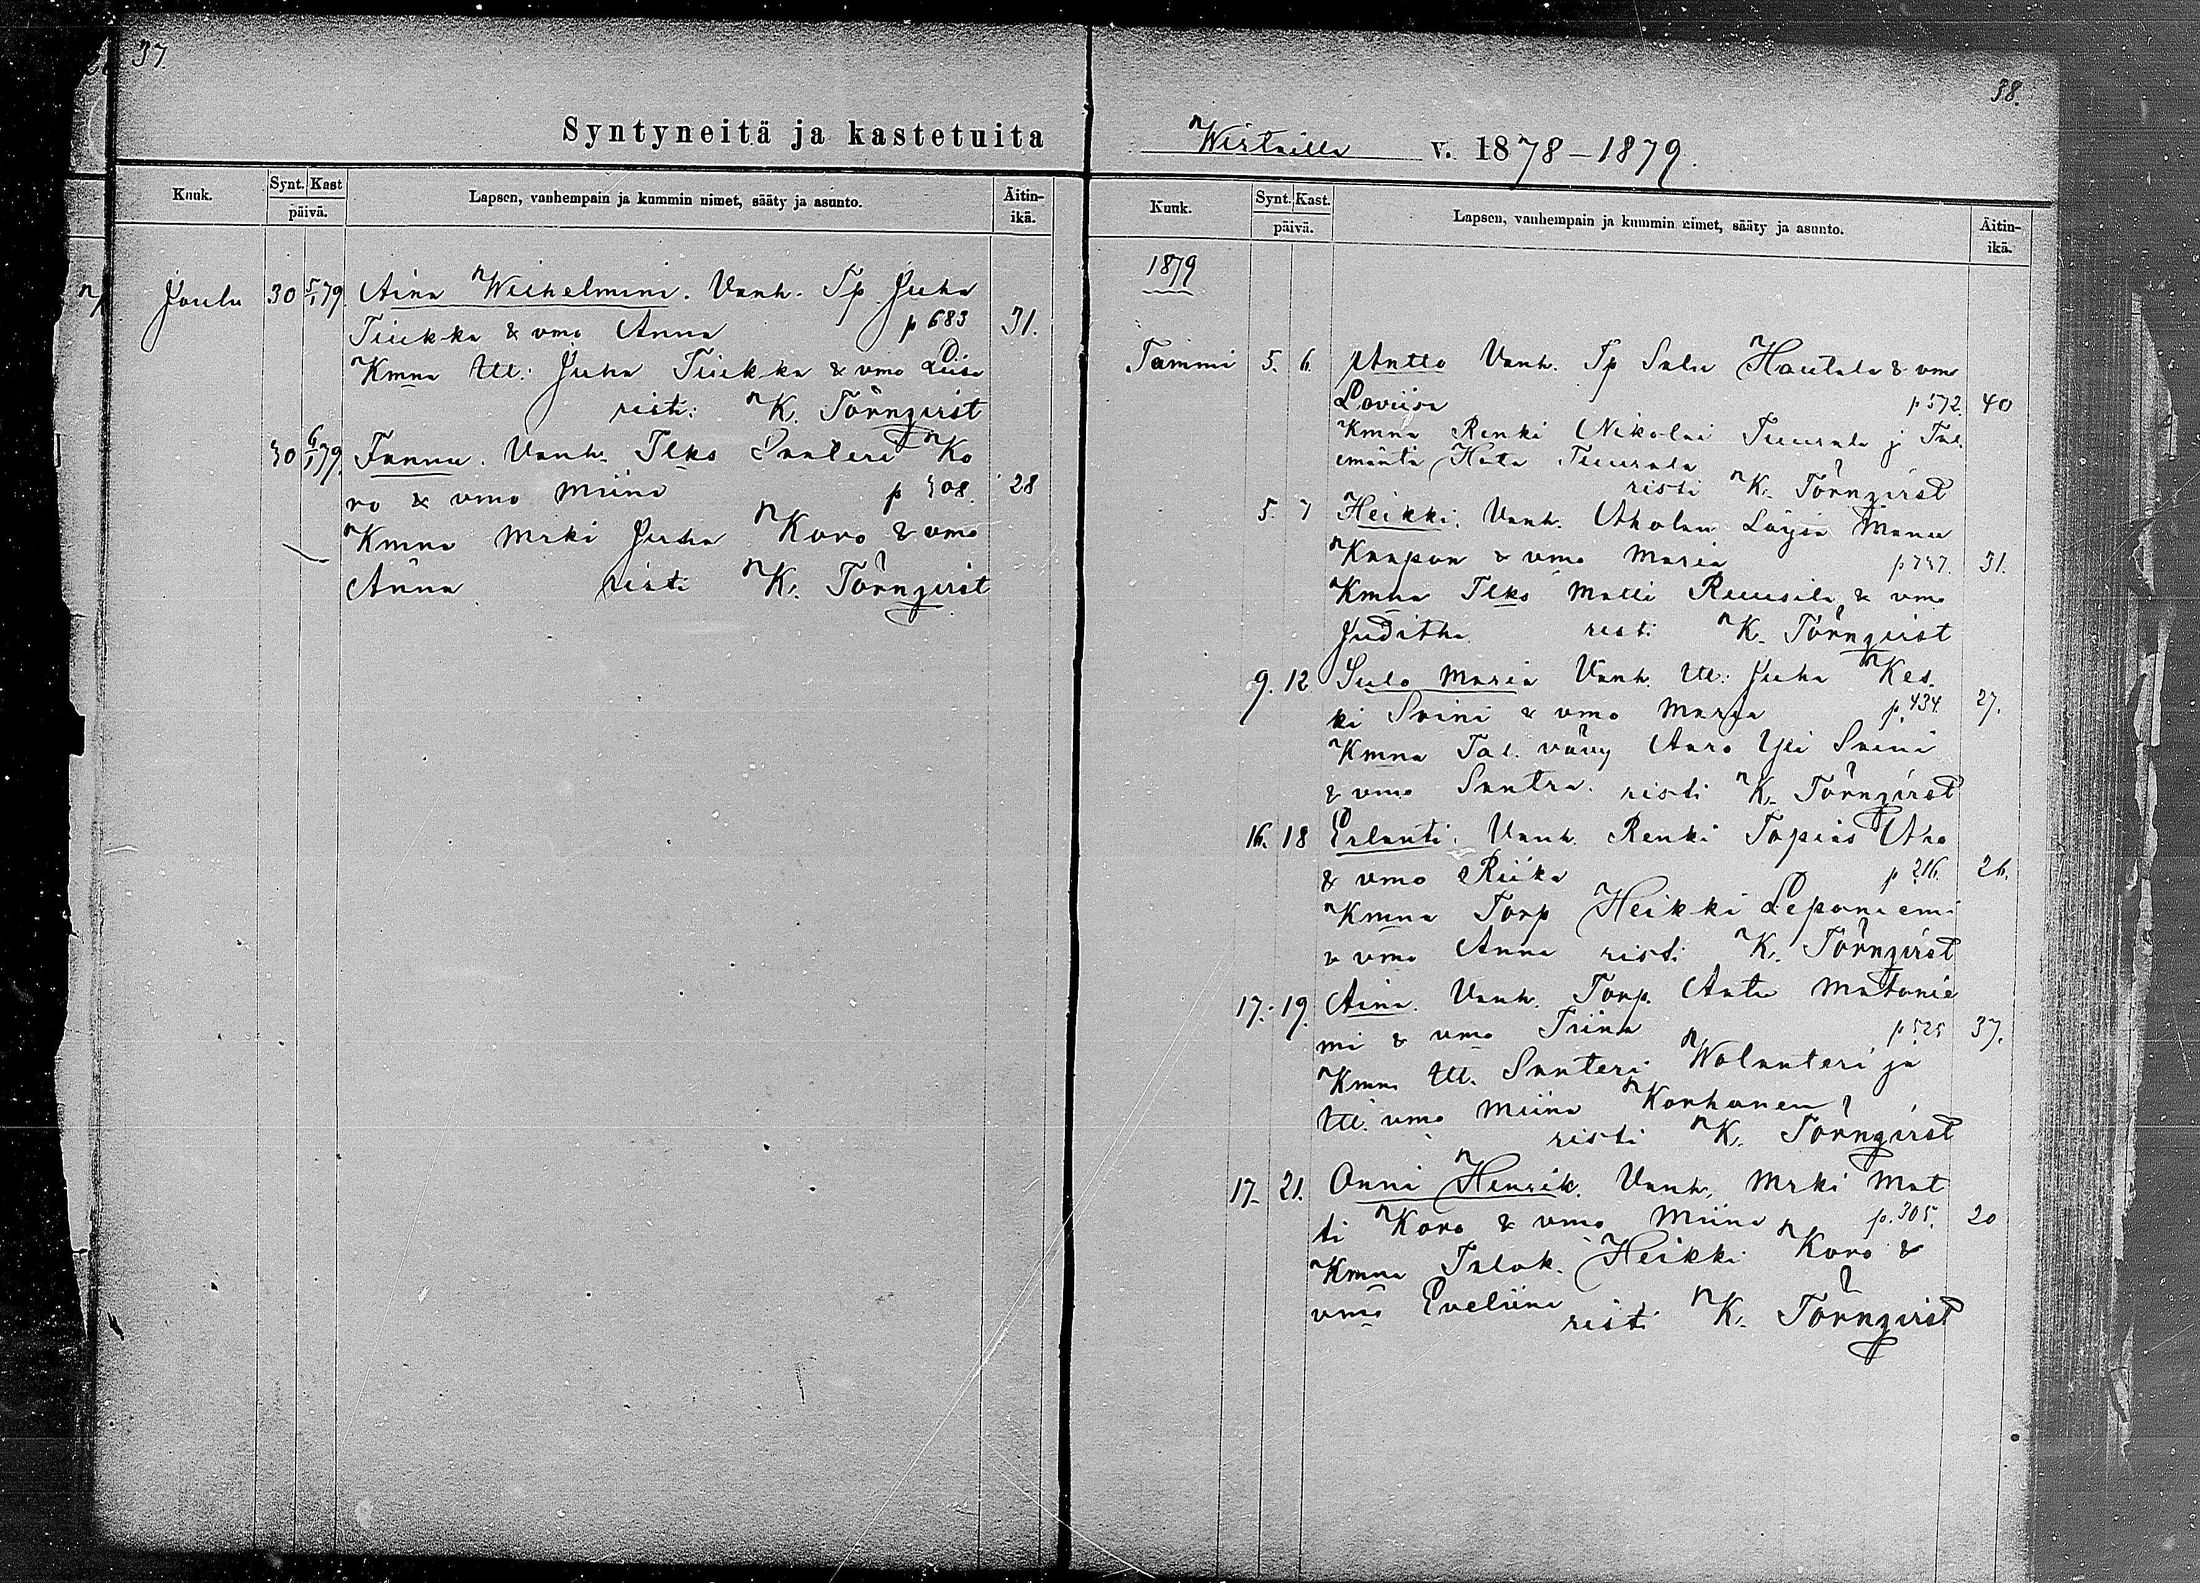 37.
Syntyneitä ja kastetuita
Kuuk.
Synt. Kast
päivä.
Lapsen, vanhempain ja kummin nimet, sääty ja asunto.
Äitin-
ikä.
Joulu 30 5/1 79. Aina Wilhelmina. Vanh. Tp. Juha
Tiukka & vmo Anna p 683 31.
Kmna Itl: Juha Tiukka & vmo Liisa
risti: K. Törnqvist
30 6/1 79. Fannu. Vanh. Tlks Santeri Ko
ro & vmo Miina p 308. 28
Kmna Mrki Juha Koro & vmo
Anna risti K. Törnqvist
38.
Wirtailla v. 1878-1879.
Kuuk.
Synt. Kast.
päivä.
Lapsen, vanhempain ja kummin nimet, sääty ja asunto.
Äitin-
ikä.
1879
Tammi 5. 6. Antto Vanh. Tp Salu Hautala & vmo
Loviisa p 572. 40
Kmna Renki Nikolai Tuurala j Tal.
emäntä Kata Tuurala
risti K. Törnqvist
5. 7 Heikki. Vanh. Aholan Manu
Kaapon & vmo Maria 31.
Kmna Tlks Matti Ruusila & vmo
Juditha risti K. Törnqvist
9. 12 Sulo Maria Vanh. Itl: Juha Kes.
ki Soini & vmo Marja p. 434. 27.
Kmna Tal. vävy Aaro Yli Soini
& vmo Santra. risti K. Törnqvist
16. 18 Erlanti. Vanh. Renki Topias Aho
& vmo Riika p 216. 26.
Kmna Torp Heikki Leponiemi
& vmo Anna risti K. Törnqvist
17. 19. Aina. Vanh. Torp. Antu Matonie
mi & vmo Triina p 525 37.
Kmna Itl. Santeri Wolanteri ja
Itl. vmo Miina Korhonen
risti K. Törnqvist
17. 21. Onni Henrik. Vanh. Mrki Mat
ti Koro & vmo Miina p. 305. 20
Kmna Talok. Heikki Koro &
vmo Eveliina
risti K. Törnqvist